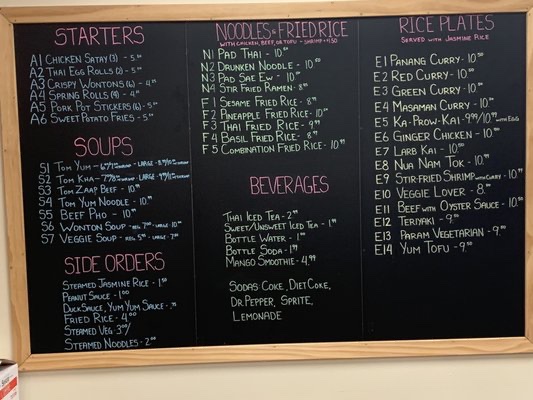 STARTERS
A1 CHICKEN SATAY (3) - 5.50
A2 THAI EGG ROLLS (2) - 5.
A3 CRISPY WONTONS (6) - 4.
A4 SPRING ROLLS (4) - 4.
A5 PORK POT STICKERS (6) - 5.
A6 SWEET POTATO FRIES - 5.
SOUPS
S1 TOM YUM - LARGE -
S2 TOM KHA - LARGE -
S3 TOM ZAAP BEEF - 10.
S4 TOM YUM NOODLE - 10.
S5 BEEF PHO - 10.
S6 WONTON SOUP - REG. 7. - LARGE - 10.
S7 VEGGIE SOUP - REG. 5. - LARGE - 7.
SIDE ORDERS
STEAMED JASMINE RICE - 1.50
PEANUT SAUCE - 1.00
DUCK SAUCE, YUM YUM SAUCE -
FRIED RICE - 4.00
STEAMED VEG - 3.00/
STEAMED NOODLES - 2.00
NOODLES & FRIED RICE
WITH CHICKEN, BEEF, OR TOFU - SHRIMP + $1.50
N1 PAD THAI - 10.50
N2 DRUNKEN NOODLE - 10.50
N3 PAD SAE EW - 10.50
N4 STIR FRIED RAMEN - 8.
F1 SESAME FRIED RICE - 8.
F2 PINEAPPLE FRIED RICE - 10.
F3 THAI FRIED RICE - 9.99
F4 BASIL FRIED RICE - 8.
F5 COMBINATION FRIED RICE - 10.99
BEVERAGES
THAI ICED TEA - 2.
SWEET/UNSWEET ICED TEA - 1.
BOTTLE WATER - 1.
BOTTLE SODA - 1.
MANGO SMOOTHIE - 4.99
SODAS COKE, DIET COKE,
DR. PEPPER, SPRITE,
LEMONADE
RICE PLATES
SERVED WITH JASMINE RICE
E1 PANANG CURRY - 10.50
E2 RED CURRY - 10.50
E3 GREEN CURRY - 10.50
E4 MASAMAN CURRY - 10.50
E5 KA-PROW-KAI - 9.99/10.99 WITH EGG
E6 GINGER CHICKEN - 10.
E7 LARB KAI - 10.
E8 NUA NAM TOK - 10.
E9 STIR-FRIED SHRIMP WITH CURRY - 10.
E10 VEGGIE LOVER - 8.
E11 BEEF WITH OYSTER SAUCE - 10.50
E12 TERIYAKI - 9.
E13 PARAM VEGETARIAN - 9.
E14 YUM TOFU - 9.50